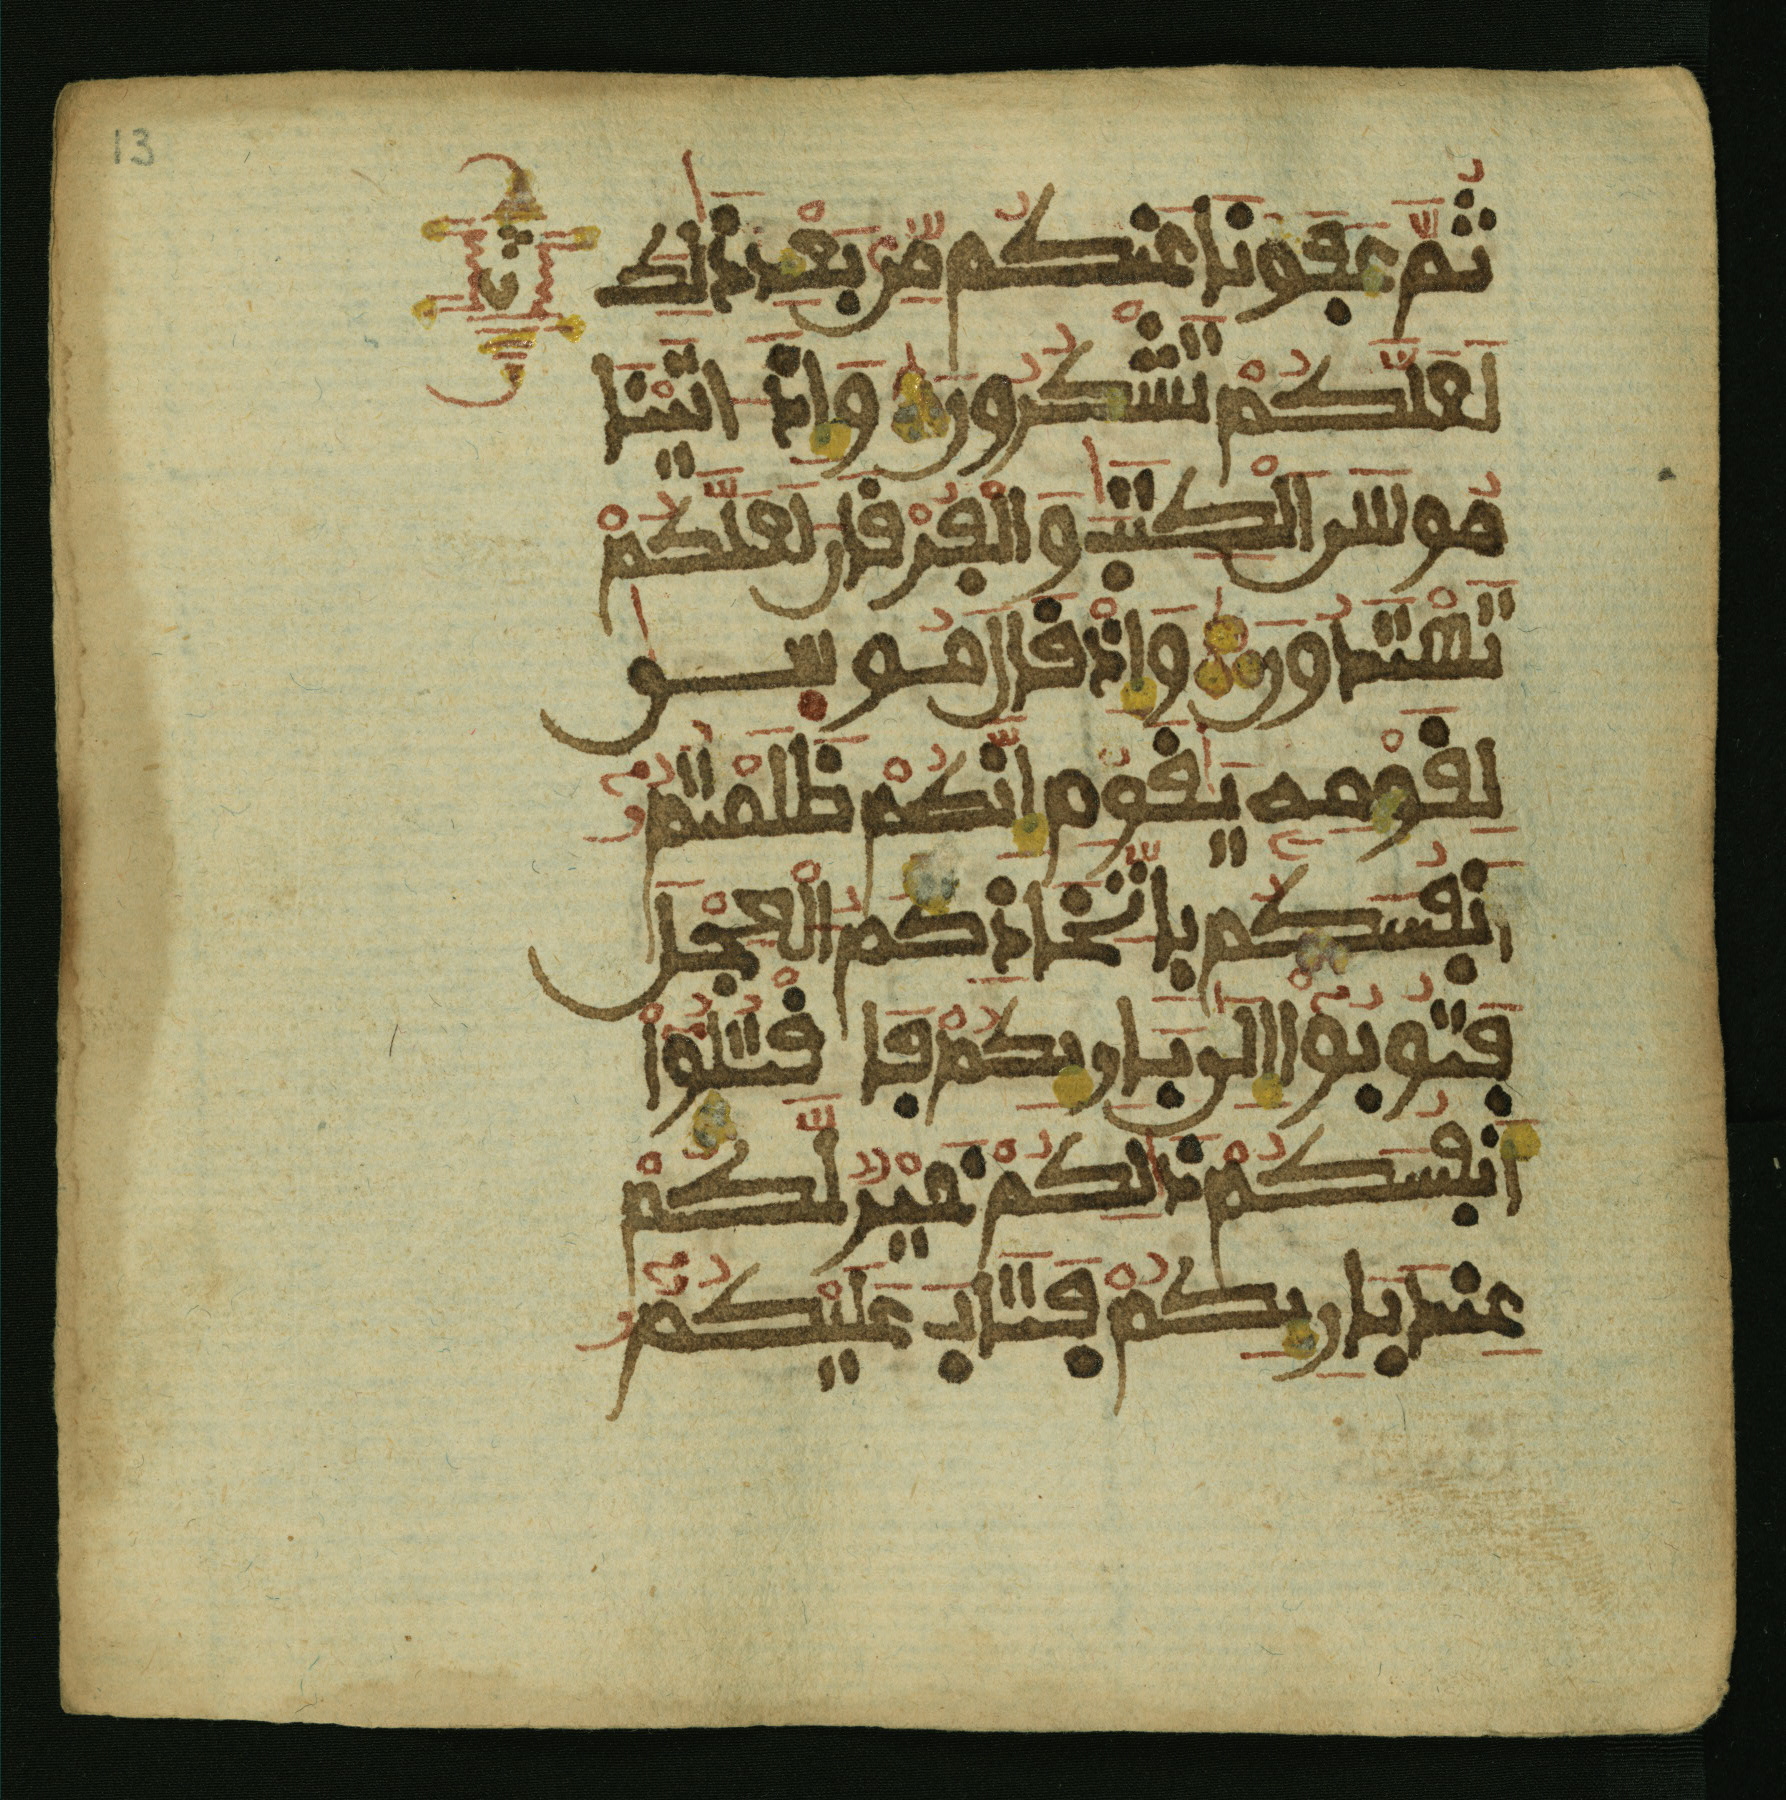 13
ثُمَّ عَفَوْنَا عَنكُم مِّنۢ بَعْدِ ذَٰلِكَ
ث
لَعَلَّكُمْ تَشْكُرُونَ وَإِذْ اٰتَيْنَا
مُوسَى الْكِتَٰبَ وَالْفُرْقَانَ لَعَلَّكُمْ
تَهْتَدُونَ وَإِذْ قَالَ مُوسىٰ
لِقَوْمِهِ يَٰقَوْمِ إِنَّكُمْ ظَلَمْتُمُۥ
أَنفُسَكُم بِاتِّخَاذِكُمُ الْعِجْلَ
فَتُوبُوٓا إِلَىٰ بَارِئِكُمْ فَاقْتُلُوٓا
أَنفُسَكُمْ ذَٰلِكُمْ خَيْرٌ لَّكُمْ
عِندَ بَارِئِكُمْ فَتَابَ عَلَيْكُمُۥٓ